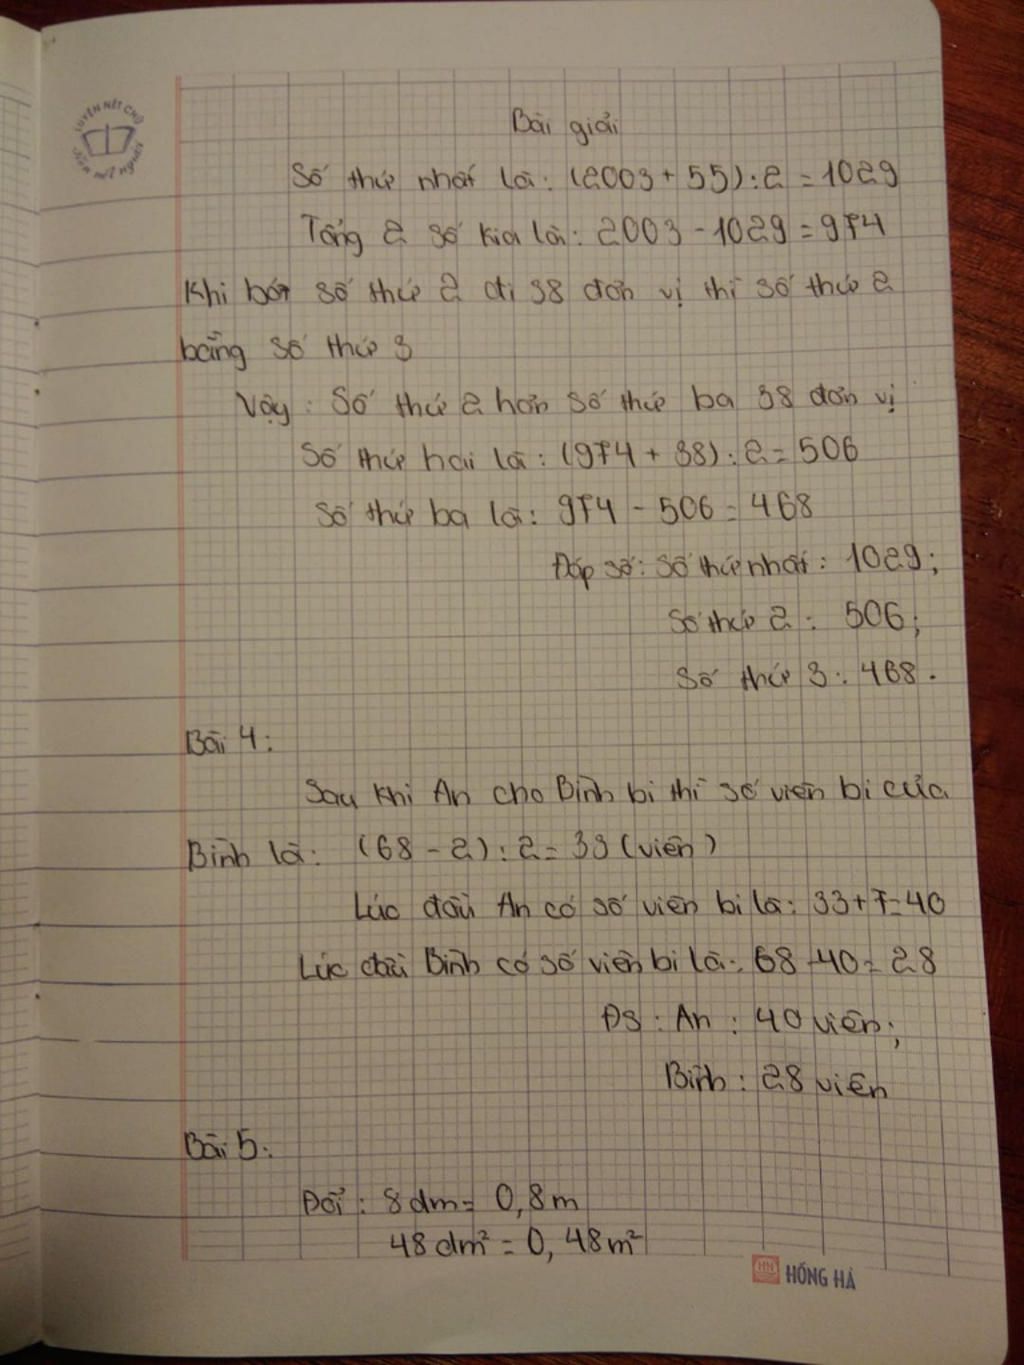 LUYỆN NÉT CHỮ
RÈN NẾT NGƯỜI
Bài giải
Số thứ nhất là: (2003 + 55) : 2 = 1029
Tổng 2 số kia là: 2003 - 1029 = 974
Khi bớt số thứ 2 đi 38 đơn vị thì số thứ 2
bằng số thứ 3
Vậy : Số thứ 2 hơn số thứ ba 38 đơn vị
Số thứ hai là : (974 + 38) : 2 = 506
Số thứ ba là: 974 - 506 = 468
Đáp số: Số thứ nhất : 1029;
Số thứ 2 : 506;
Số thứ 3 : 468.
Bài 4:
Sau khi An cho Bình bi thì số viên bi của
Bình là: (68 - 2) : 2 = 33 (viên)
Lúc đầu An có số viên bi là: 33 + 7 = 40
Lúc đầu Bình có số viên bi là: 68 - 40 = 28
ĐS : An : 40 viên;
Bình : 28 viên
Bài 5:
Đổi : 8 dm = 0,8 m
48 dm² = 0,48 m²
HN HỒNG HÀ